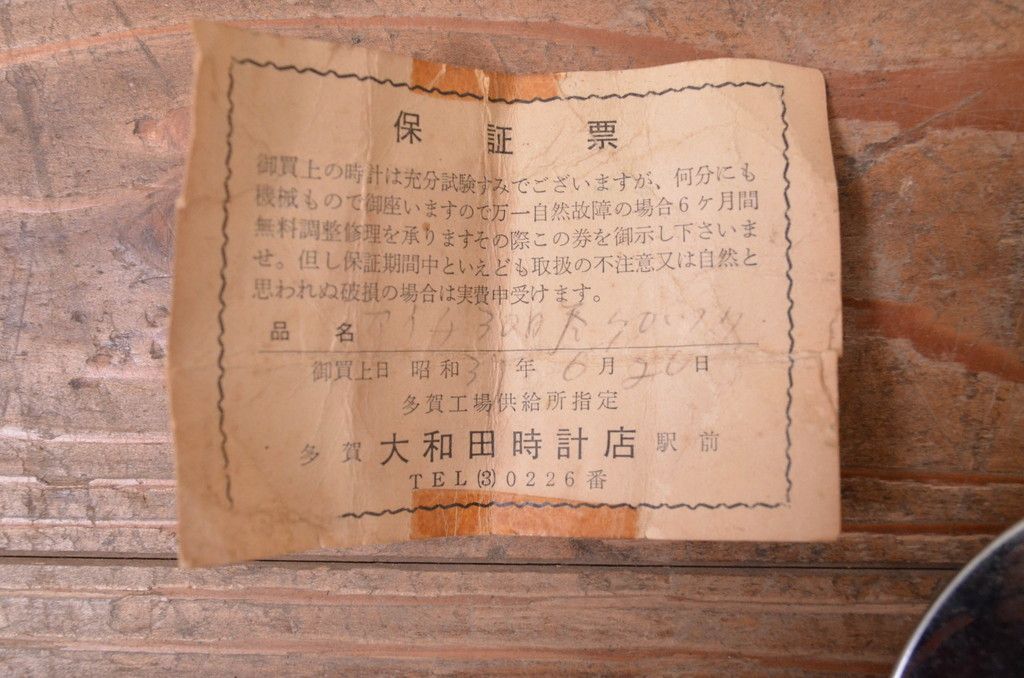 保証票
御買上の時計は充分試験すみでございますが、何分にも
機械もので御座いますので万一自然故障の場合6ヶ月間
無料調整修理を承りますその際この券を御示し下さいま
せ。但し保証期間中といえども取扱の不注意又は自然と
思われぬ破損の場合は実費申受けます。
品名 30日
御買上日 昭和3 年 6月20日
多賀工場供給所指定
多賀 大和田時計店 駅前
TEL(3)0226番